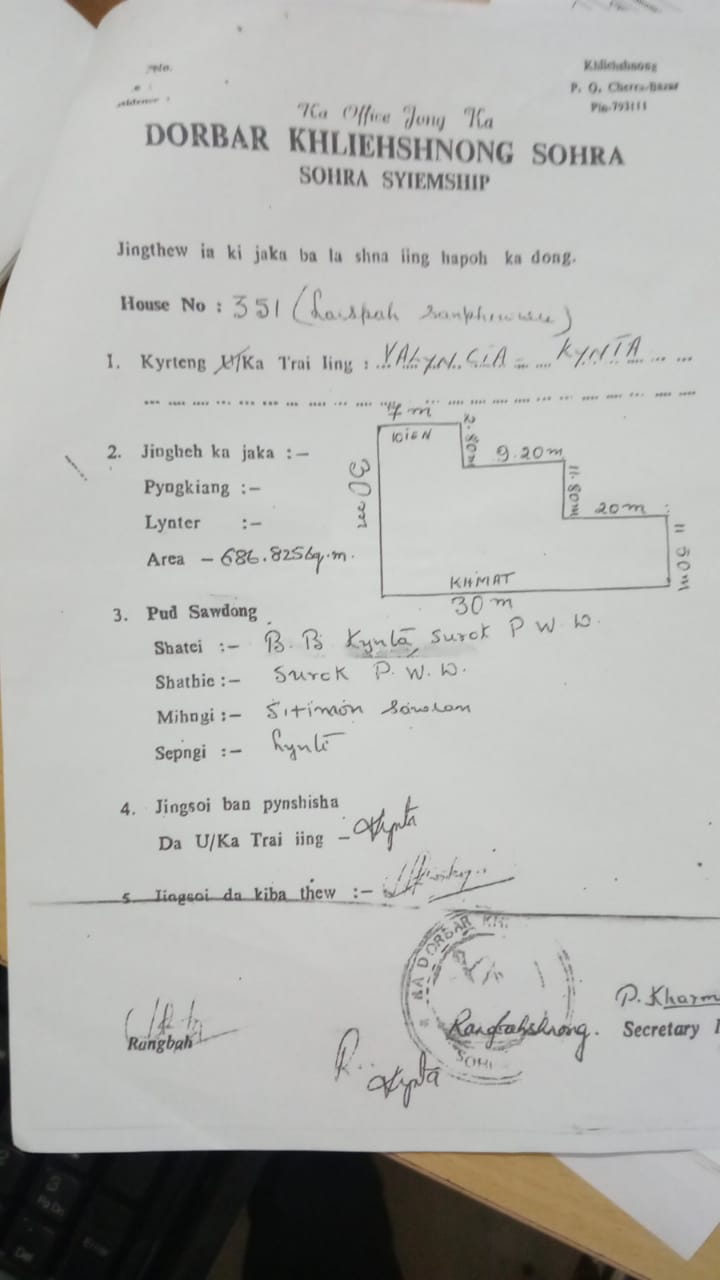 Khliehshnong
P. O. Cherra-Bazar
Pin-793111
Ka Office Jong Ka
DORBAR KHLIEHSHNONG SOHRA
SOHRA SYIEMSHIP
Jingthew ia ki jaka ba la shna iing hapoh ka dong.
House No : 351 (Laispah sanphew wei)
1. Kyrteng U/Ka Trai Iing : VALYNCIA KYNTA
7 m
KDIEN
2.80m
2. Jingheh ka jaka :-
9.20m
Pyngkiang :-
30m
11.80m
20m
Lynter :-
Area - 686.825Sq.m.
KHMAT
11.50m
30 m
3. Pud Sawdong
Shatei :- B. B. Kynta, Surok P W D.
Shathie :- Surok P. W. D.
Mihngi :- Sitimon
Sepngi :- Lynti
4. Jingsoi ban pynshisha
Da U/Ka Trai iing - Kynta
5. Jingsoi da kiba thew :-
KA DORBAR KH
SOH
Rangbah
Rangbahshnong.
P. Kharm
Secretary
R.. Kynta